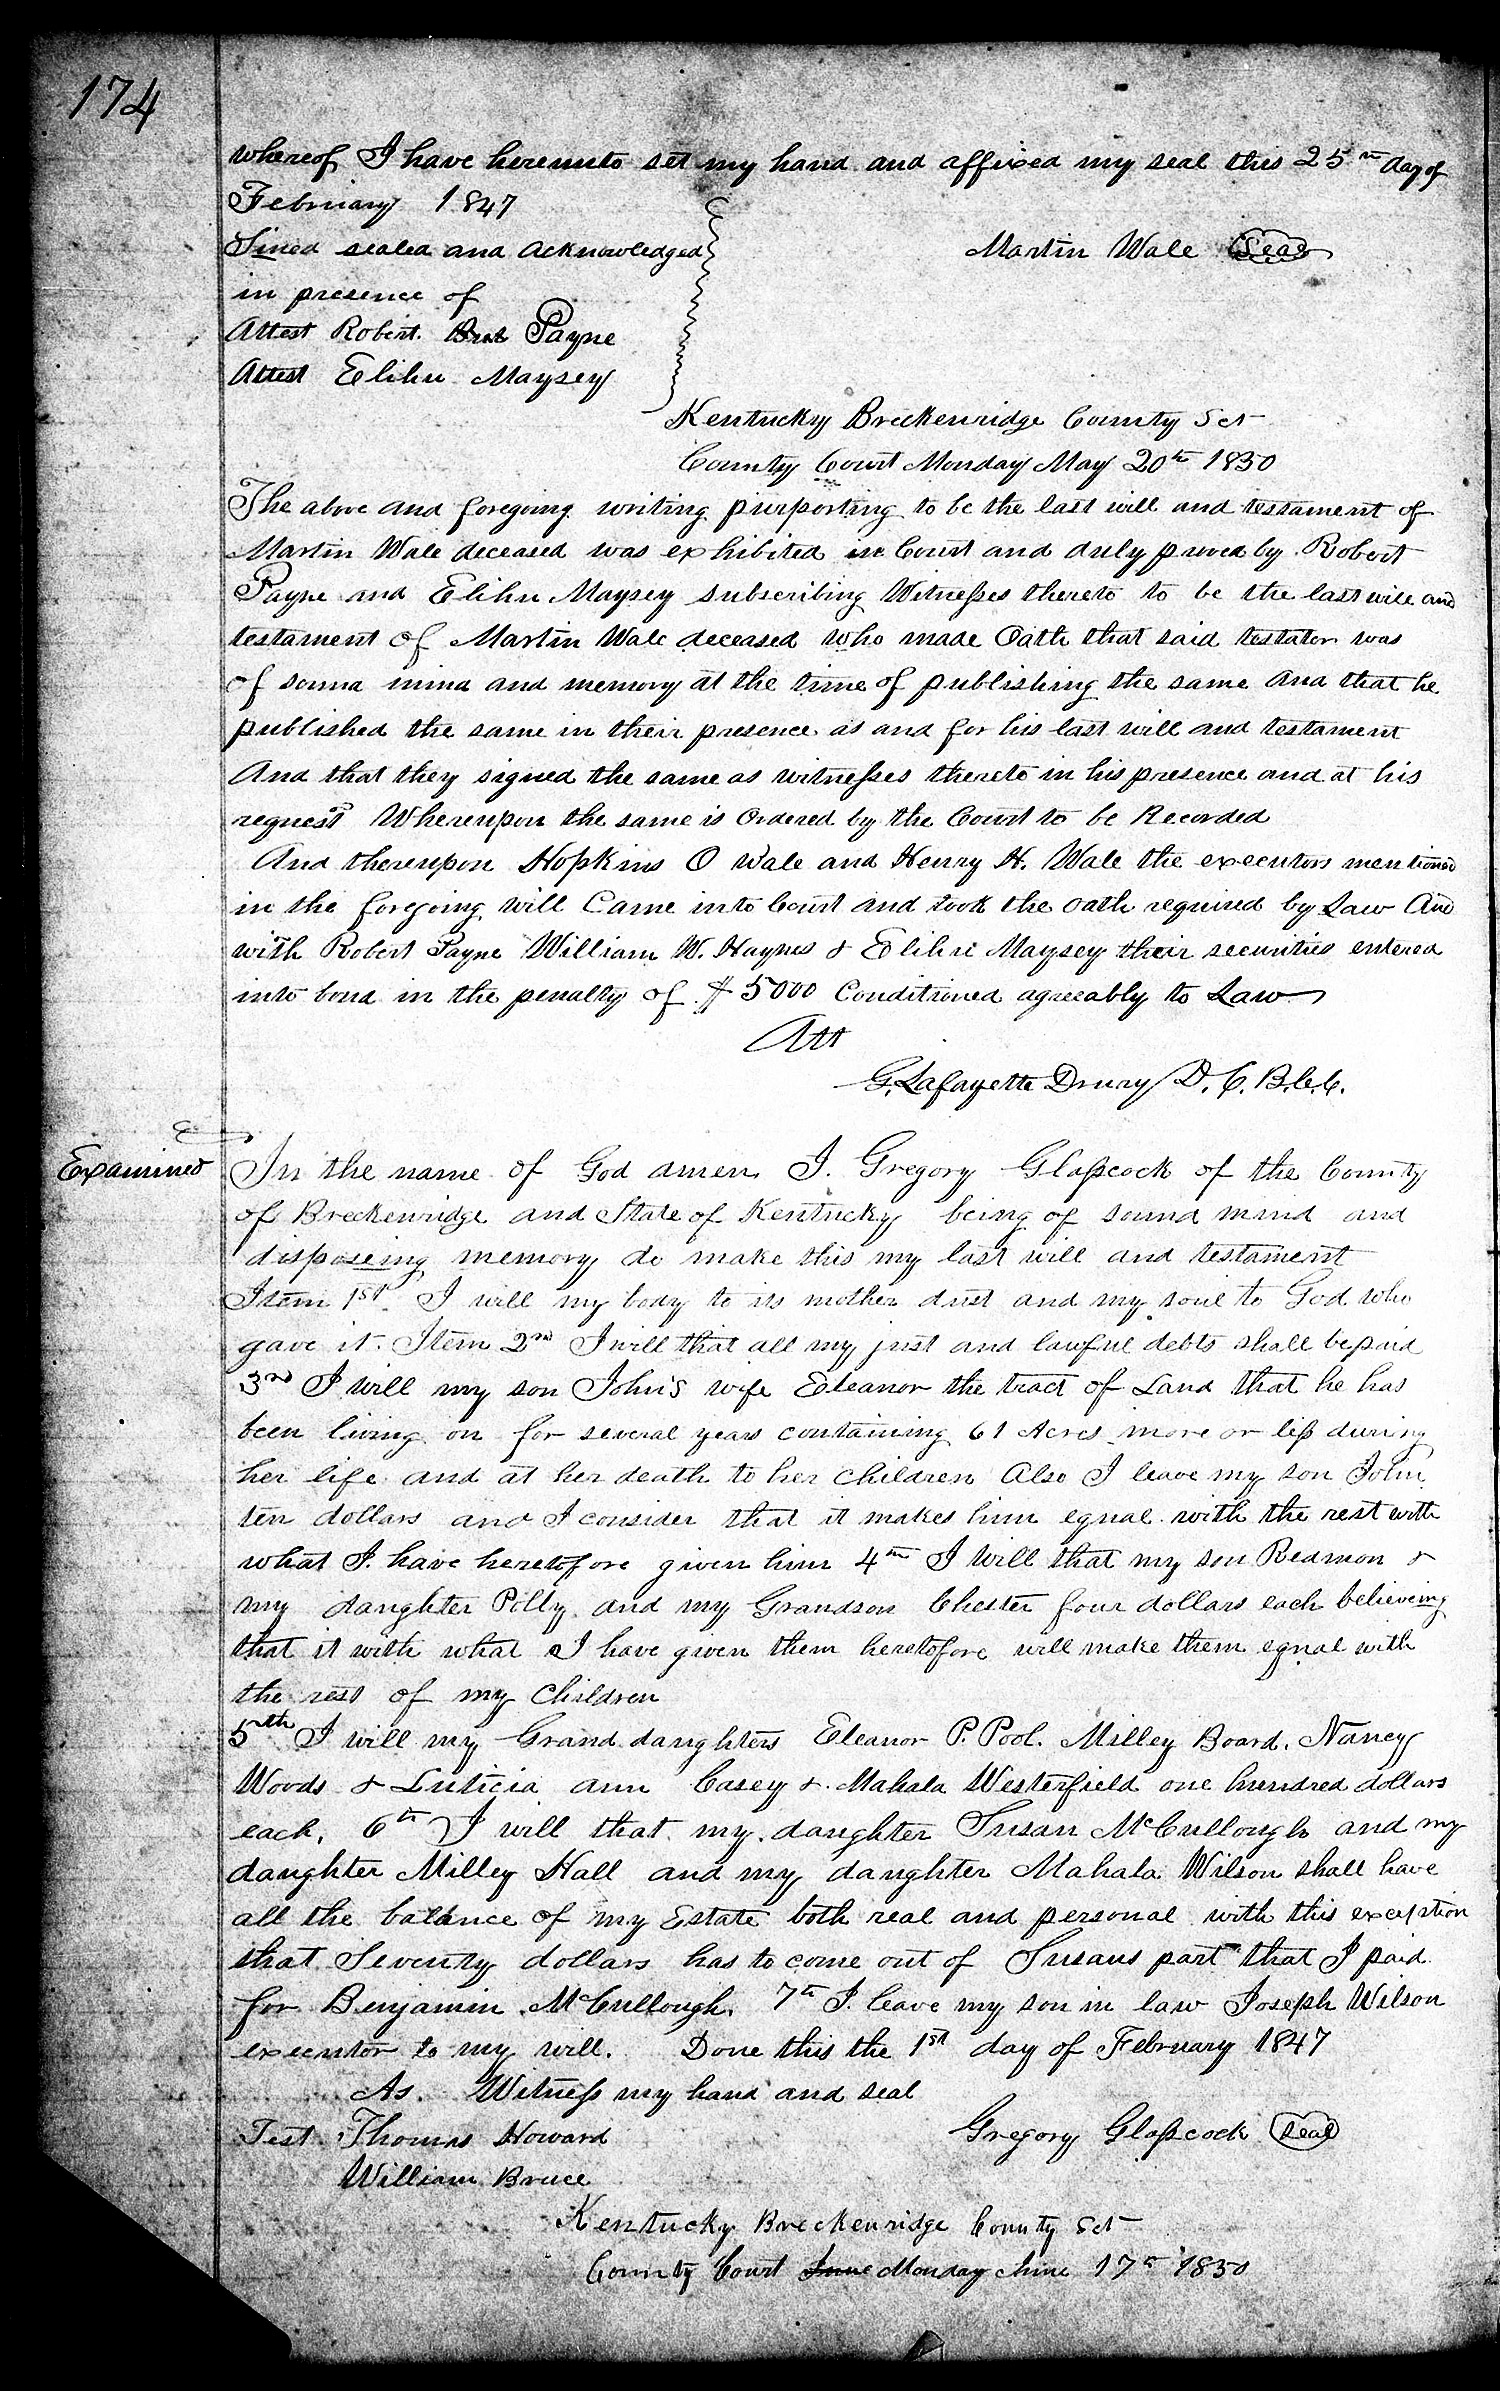 174
whereof I have hereunto set my hand and affixed my seal this 25th day of
February 1847
Sined sealed and acknowledged
Martin Wale Seal
in presence of
Attest Robert Payne
Attest Elihu Maysey
Kentucky Breckenridge County Sct
County Court Monday May 20th 1850
The above and foregoing writing purporting to be the last will and testament of
Martin Wale deceased was exhibited in Court and duly proved by Robert
Payne and Elihu Maysey subscribing Witnesses thereto to be the last will and
testament of Martin Wale deceased who made Oath that said testator was
of sound mind and memory at the time of publishing the same And that he
published the same in their presence as and for his last will and testament
And that they signed the same as witnesses thereto in his presence and at his
request Whereupon the same is Ordered by the Court to be Recorded
And thereupon Hopkins O Wale and Henry H. Wale the executors mentioned
in the foregoing will Came into Court and took the oath required by Law And
with Robert Payne William W. Haynes & Elihu Maysey their securities entered
into bond in the penalty of $5000 Conditioned agreeably to Law
Att
G. Lafayette Drury D. C. B.C.C.
Examined
In the name of God amen I. Gregory Glasscock of the County
of Breckenridge and State of Kentucky being of sound mind and
disposeing memory do make this my last will and testament
Item 1st. I will my body to its mother dust and my soul to God who
gave it. Item 2nd I will that all my just and lawful debts shall be paid
3rd I will my son John's wife Eleanor the tract of Land that he has
been living on for several years containing 61 Acres more or less during
her life and at her death to her children Also I leave my son John
ten dollars and I consider that it makes him equal with the rest with
what I have heretofore given him 4th I will that my son Redmon &
my daughter Polly and my Grandson Chester four dollars each believeing
that it with what I have given them heretofore will make them equal with
the rest of my Children
5th I will my Grand daughters Eleanor P. Pool. Milley Board. Nancy
Woods & Luticia ann Casey & Mahala Westerfield one hundred dollars
each. 6th I will that my daughter Susan McCullough and my
daughter Milley Hall and my daughter Mahala Wilson shall have
all the balance of my Estate both real and personal with this exception
that Seventy dollars has to come out of Susans part that I paid
for Benjamin McCullough. 7th I leave my son in law Joseph Wilson
executor to my will. Done this the 1st day of February 1847
As Witness my hand and seal
Test Thomas Howard
Gregory Glasscock Seal
William Bruce
Kentucky Breckenridge County Sct
County Court June Monday June 17th 1850